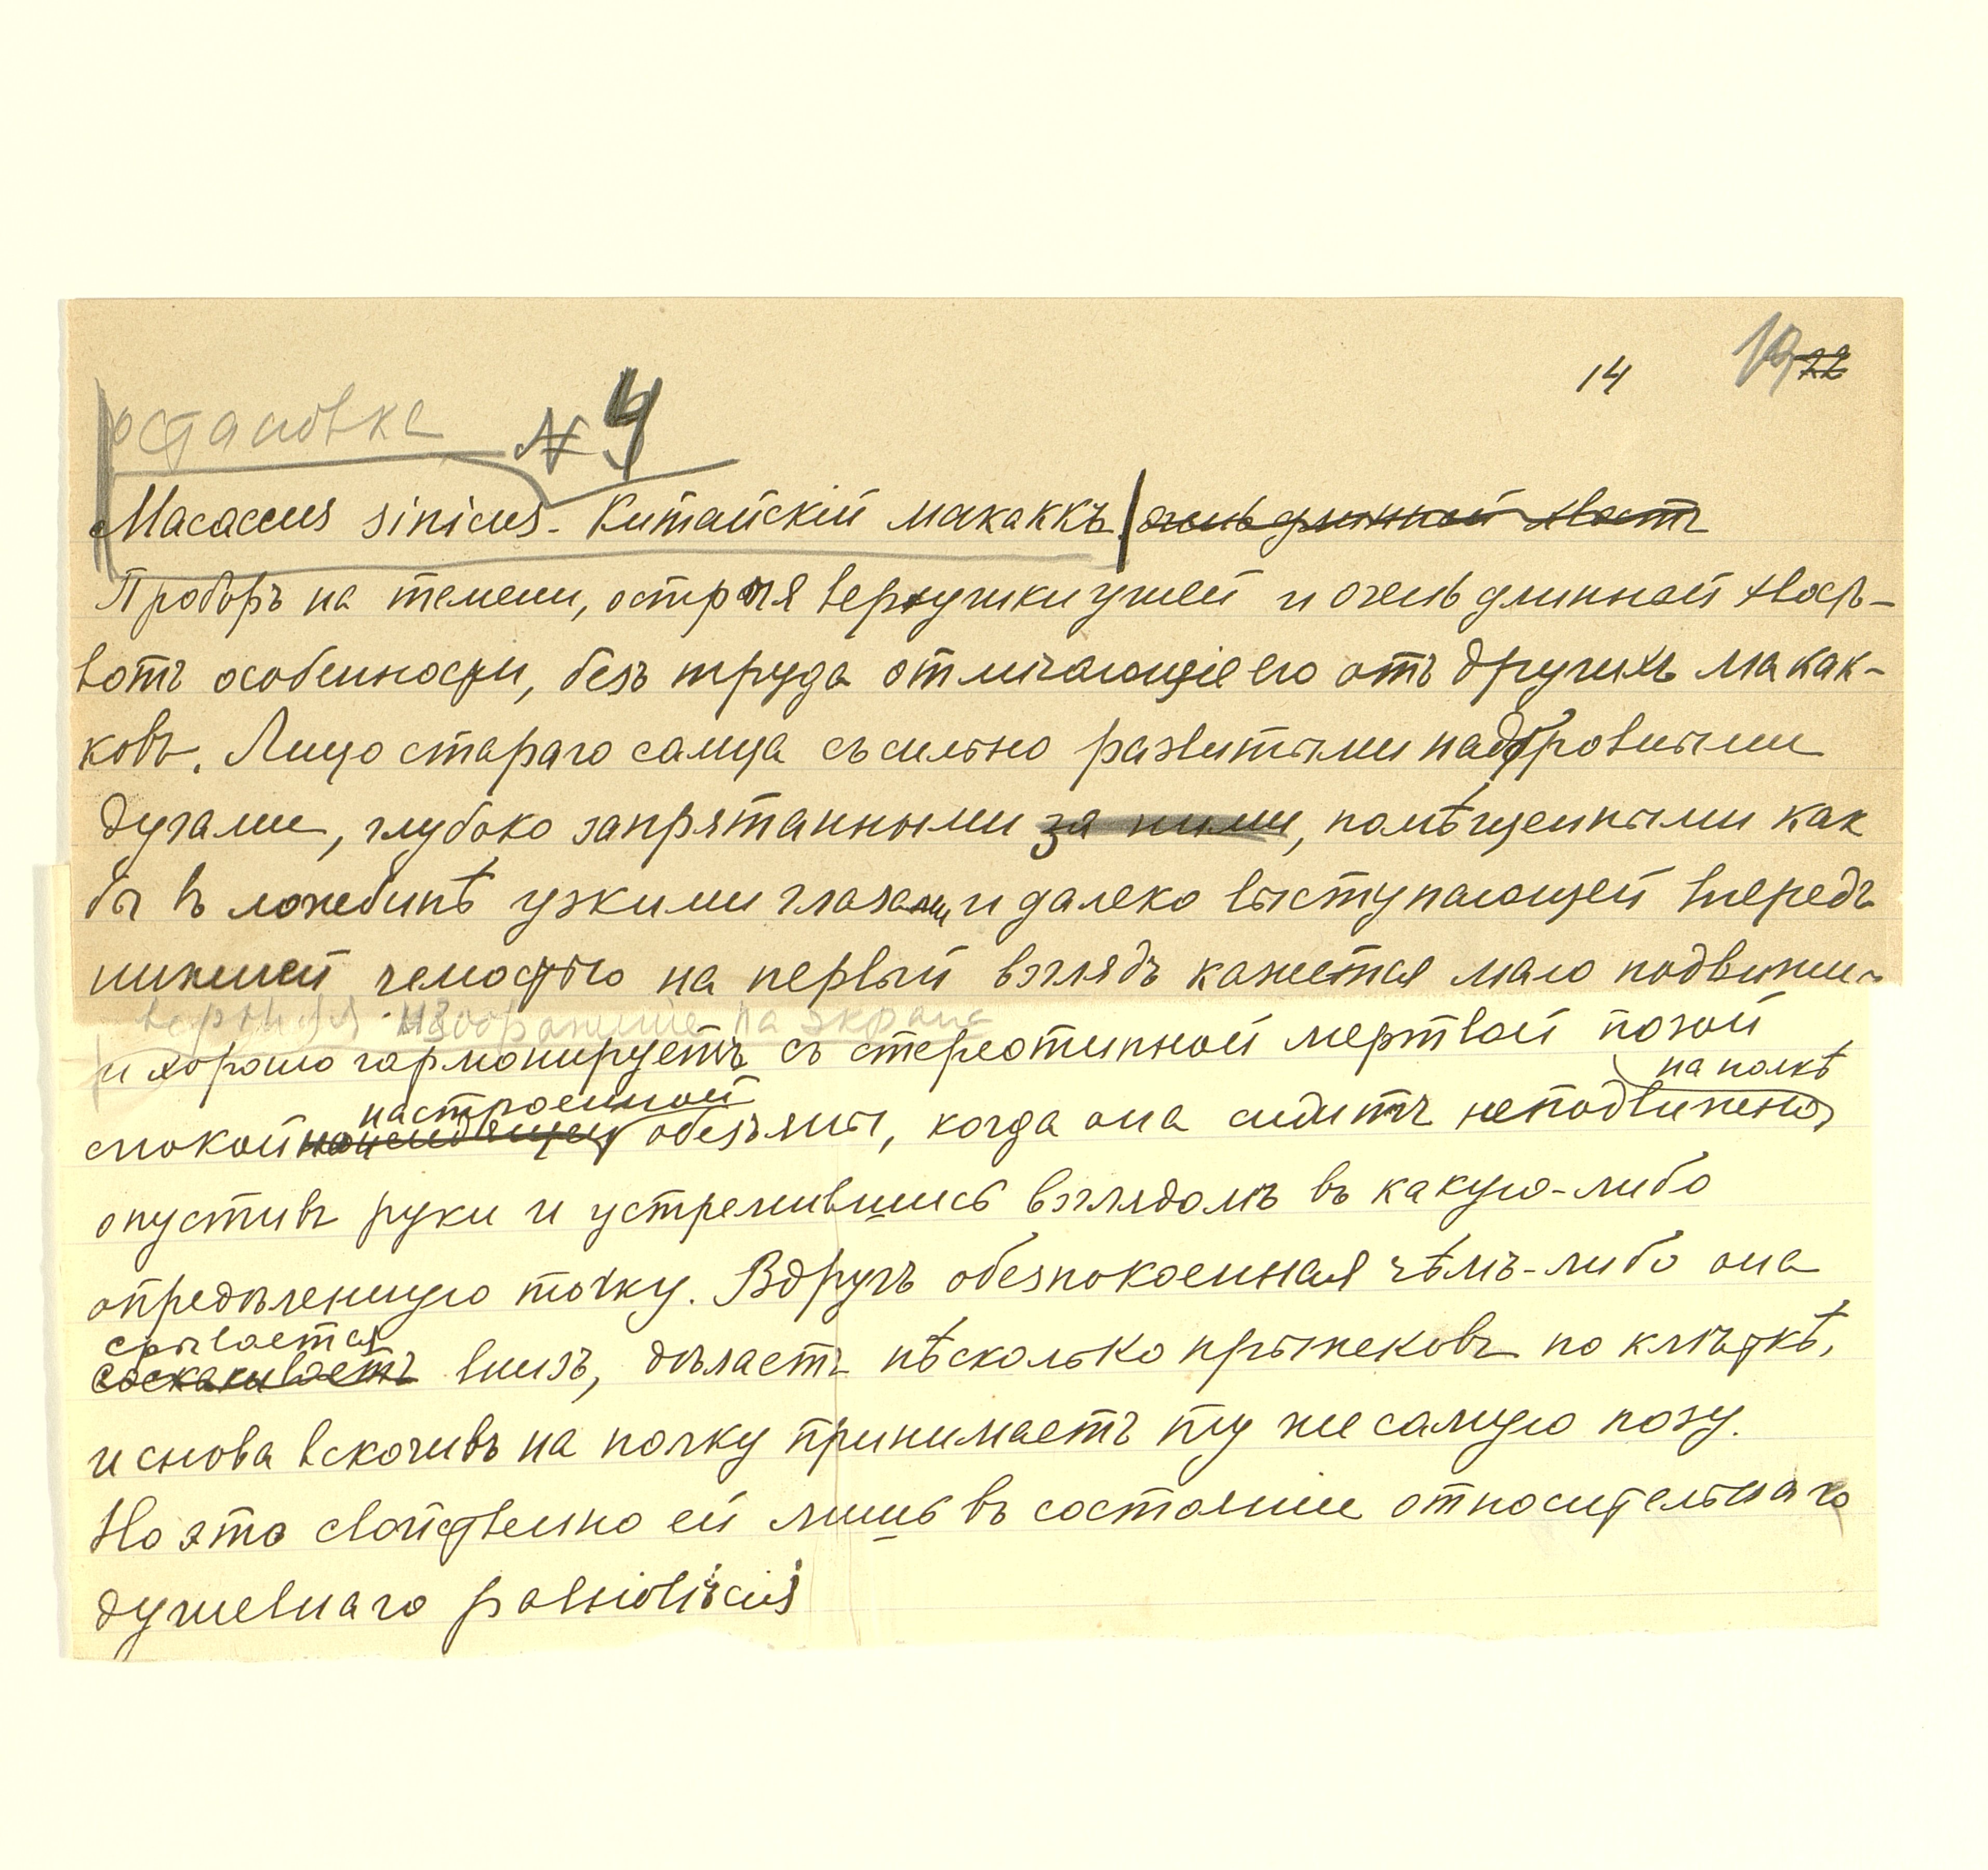 14 19 22
остановка № 4
Macaccus sinicus - Китайскій макаккъ очень длинный хвостъ
Проборъ на темени, острыя верхушки ушей и очень длинный хвость-
вотъ особенности, безъ труда отличающіе его отъ другихъ макак-
ковъ. Лицо стараго самца съ сильно развитыми надбровными
дугами, глубоко запрятанными за ними, помѣщенными как
бы в ложбинѣ узкими глазами и далеко выступающей впередъ
нижней челюстью на первый взглядъ кажется мало подвижн-
изображеніе на экране
и хорошо гармонируетъ съ стереотипной мертвой позой
настроенной на полкѣ
спокойно сидящей обезьяны, когда она сидитъ неподвижно,
опустивъ руки и устремившись взглядомъ въ какую-либо
опредѣленную точку. Вдругъ обезпокоенная чѣмъ-либо она
срывается
соскакиваетъ внизъ, дѣлаетъ нѣсколько прыжековъ по клѣткѣ,
и снова вскочивъ на полку принимаетъ ту же самую позу.
Но это свойственно ей лишь въ состояніи относительнаго
душевнаго равновѣсія